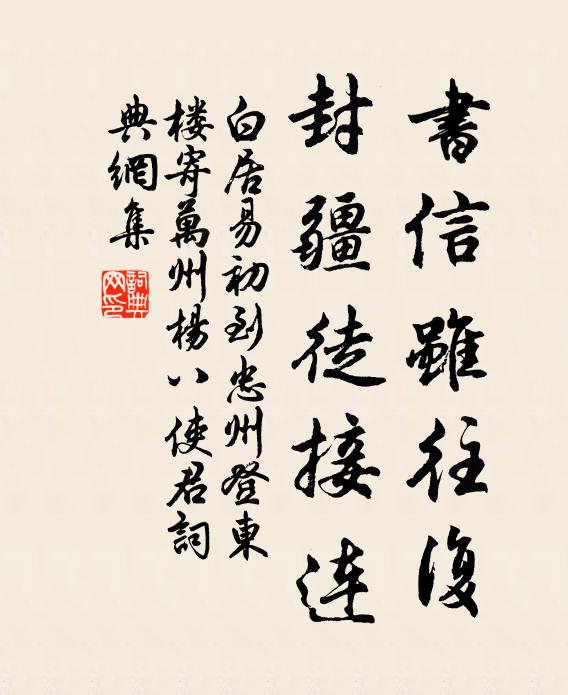 書信雖往復
封疆徒接連
白居易初到忠州登東
楼寄萬州楊八使君詞
典網集
詞典網印